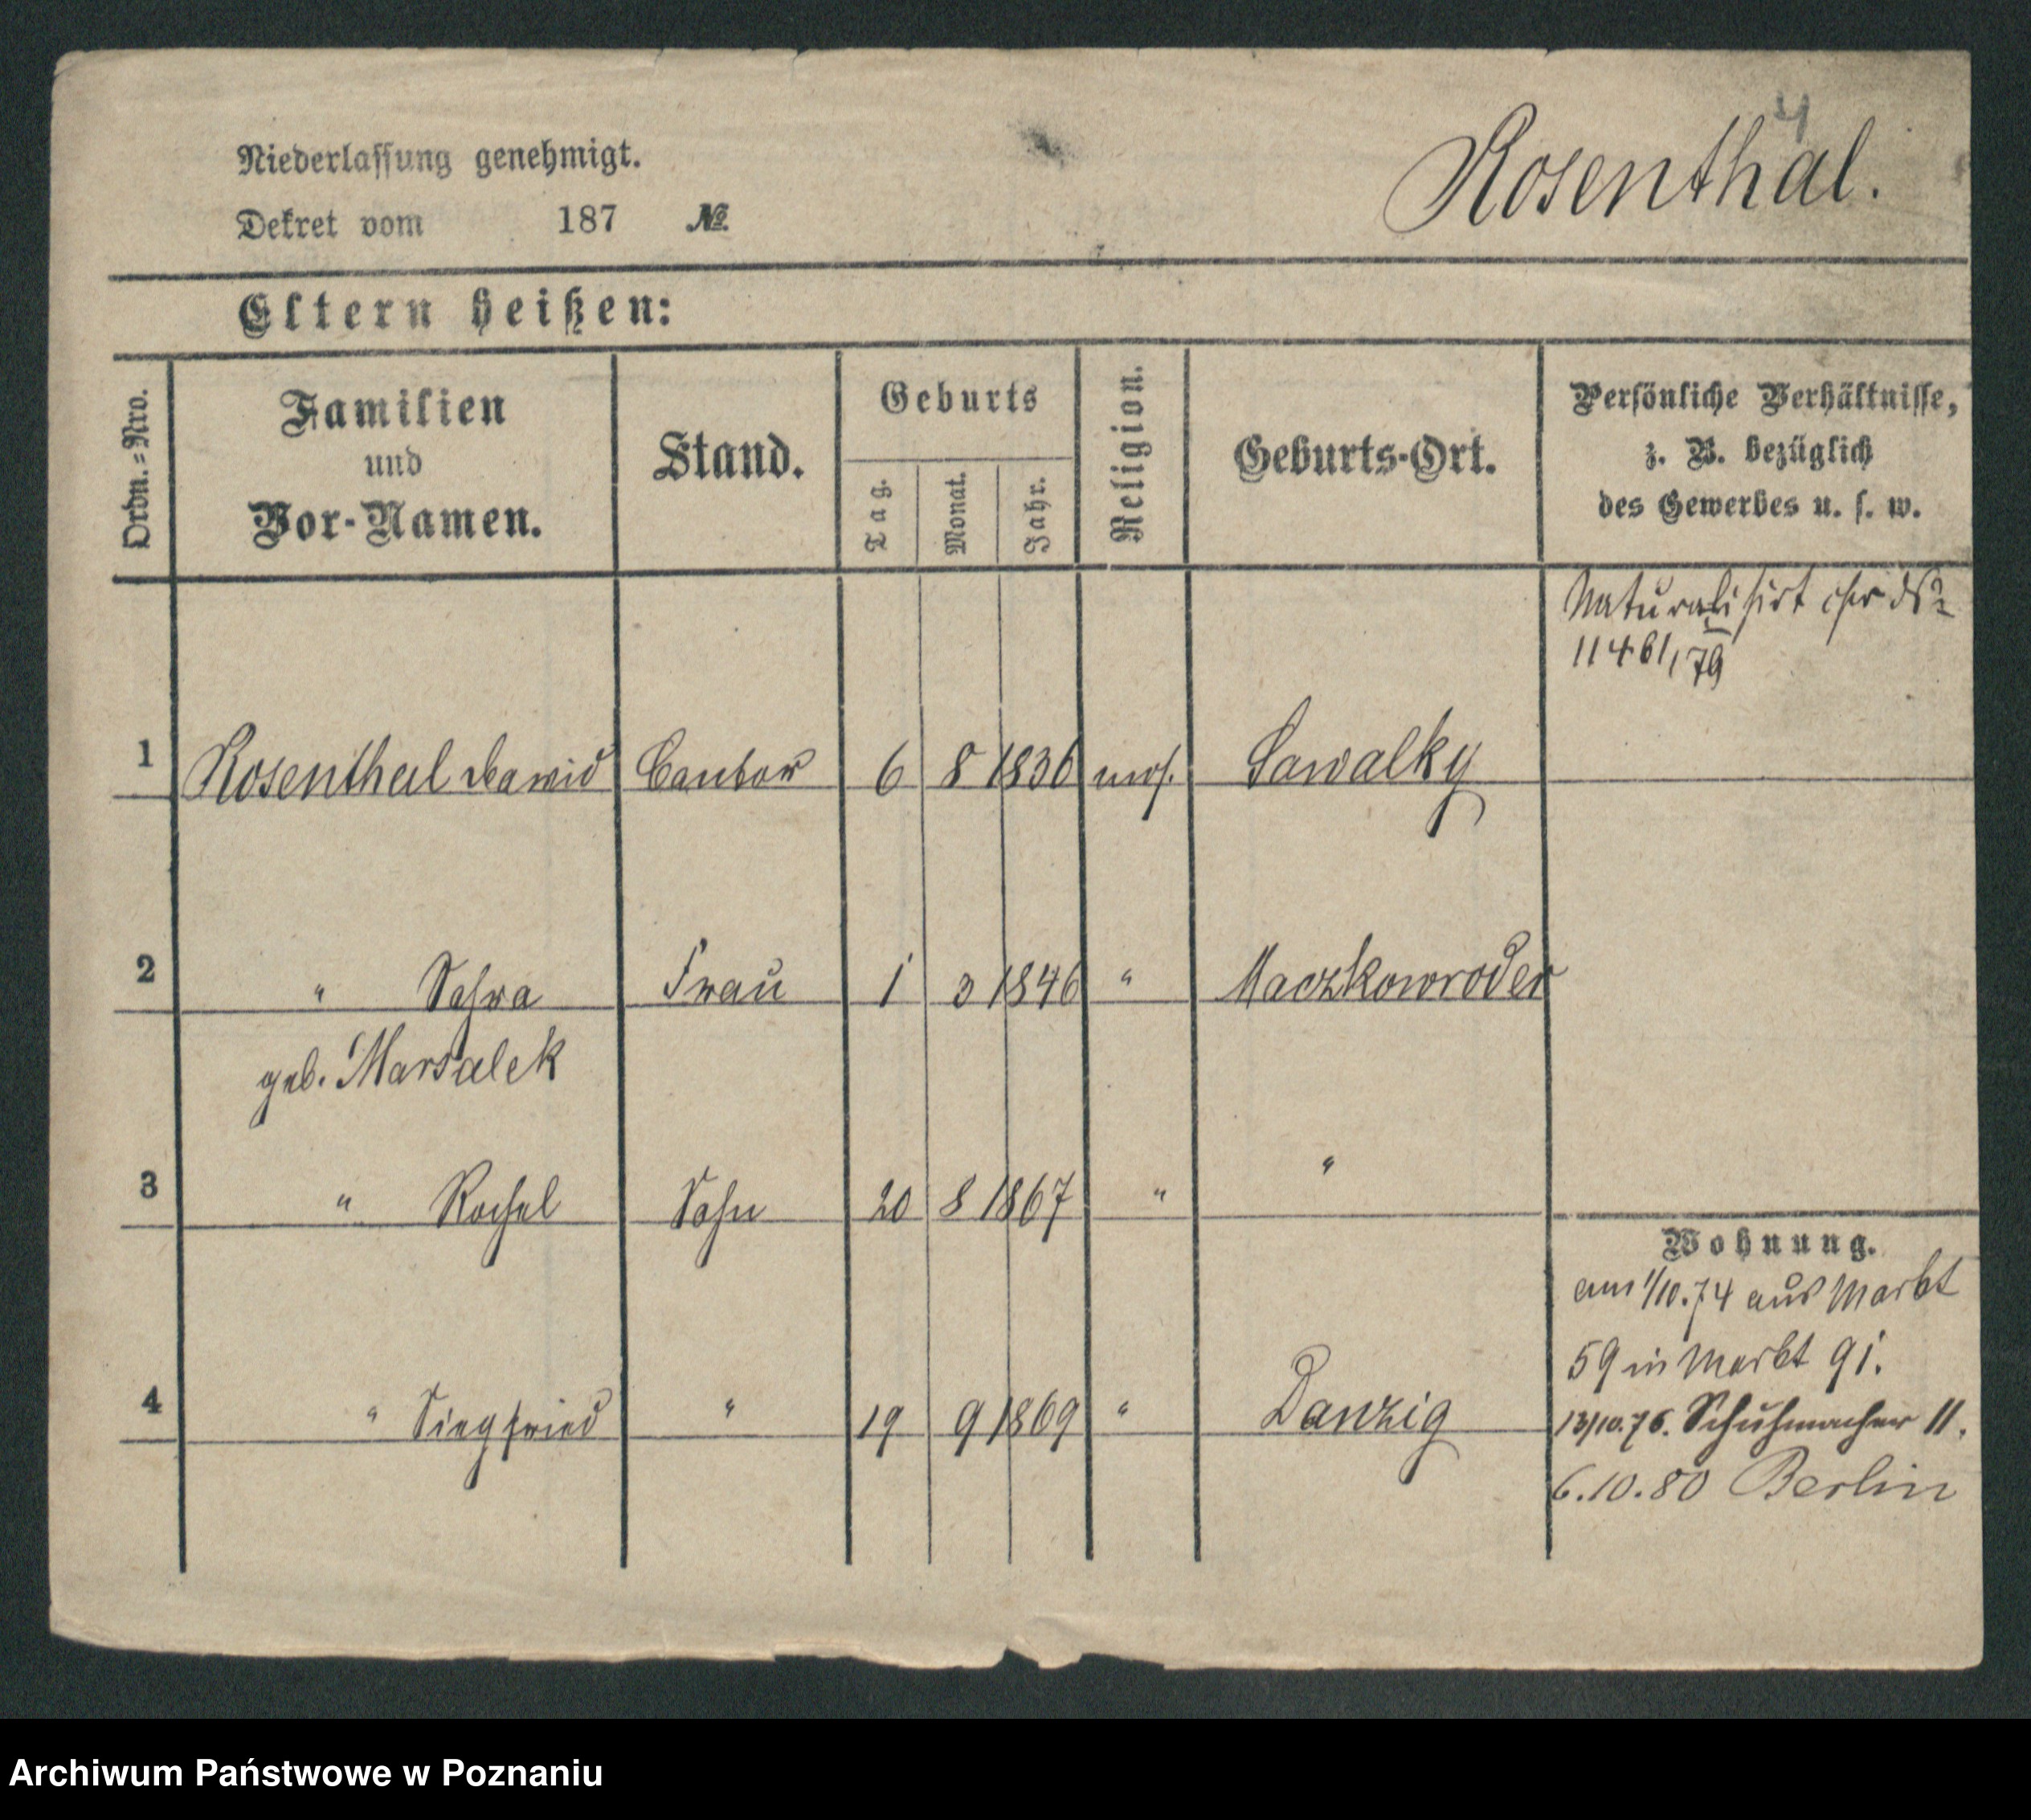 4
Niederlassung genehmigt.
Rosenthal.
Dekret vom 187 №
Eltern heißen:
Ordn.=Nro.
Familien und Vor-Namen.
Stand.
Geburts
Tag.
Monat.
Jahr.
Religion.
Geburts-Ort.
Persönliche Verhältnisse,
z. B. bezüglich
des Gewerbes u. s. w.
Naturalisirt
11461/79
1 Rosenthal Dawid Cantor 6 8 1836 mos. Sawalky
2 " Frau 1 3 1846 "
geb. Marsalek
3 " Rochel Sohn 20 8 1867 " "
Wohnung.
am 1/10.74 aus Markt
59 in Markt 91.
4 " Siegfried " 19 9 1869 " Danzig
13/10.76. Schuhmacher 11.
6.10.80 Berlin
Archiwum Państwowe w Poznaniu